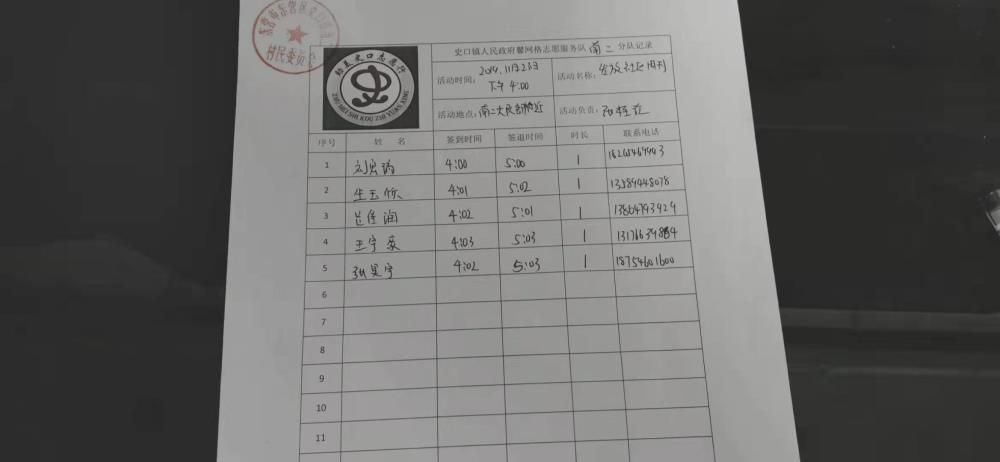 东营市东营区史口镇
村民委员会
助美史口志愿行
ZHU MEI SHI KOU ZHI YUAN XING
史口镇人民政府馨网格志愿服务队 南二 分队记录
活动时间: 2014.11月23日 下午 4:00
活动名称: 发放社区周刊
活动地点: 南二大民部附近
活动负责:
序号 姓 名 签到时间 签退时间 时长 联系电话
1 4:00 5:00 1
2 4:01 5:02 1 13589448078
3 4:02 5:01 1 13864793929
4 王宇 4:03 5:03 1
5 张昊宇 4:02 5:03 1 18754601600
6
7
8
9
10
11